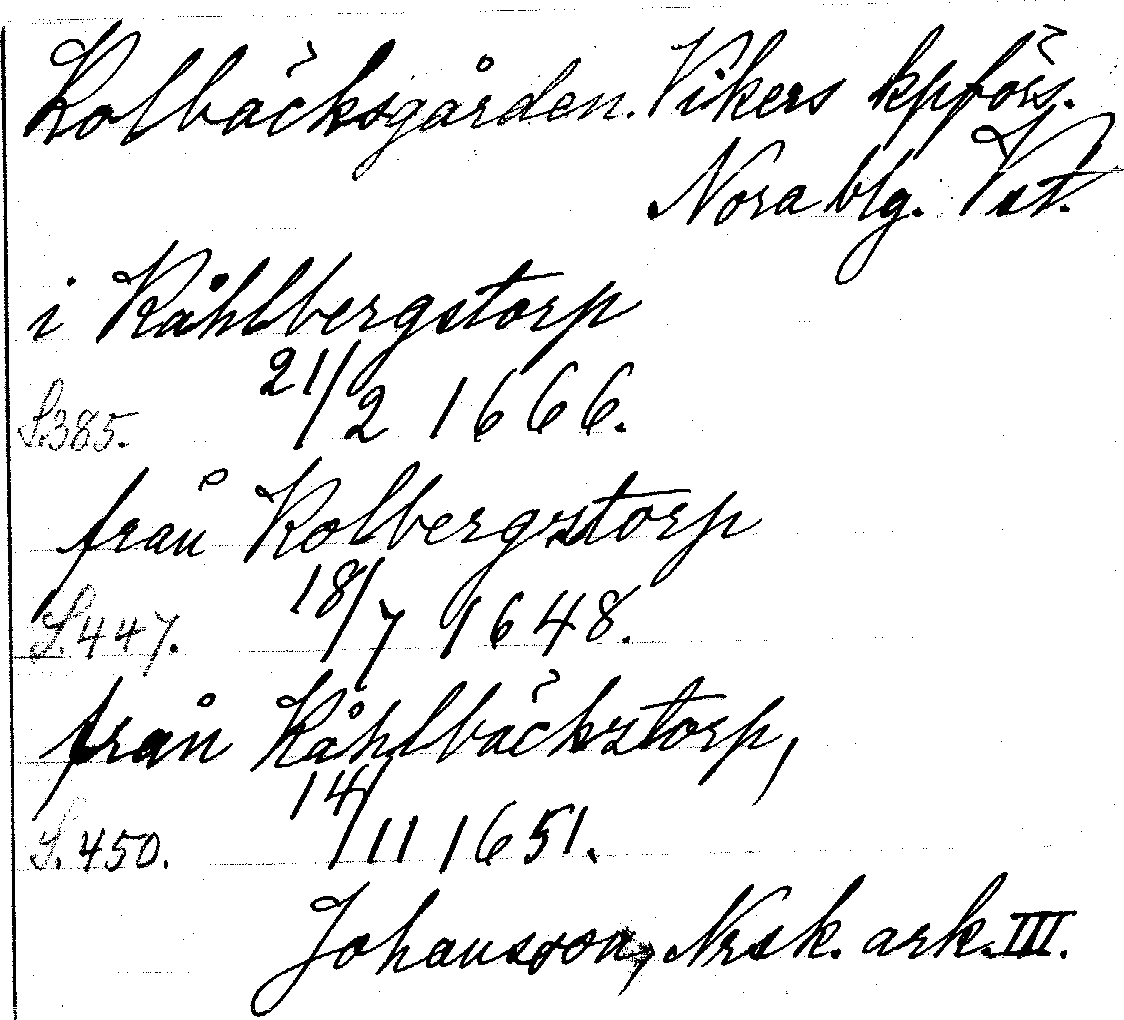 Kolbäcksgården. Vikers kpförs.
Nora blg. Vst.
i Kåhlbergstorp
S. 385. 21/2 1666.
från Kolbergstorp
S. 447. 18/7 1648.
från Kåhlbäckztorp,
S. 450. 14/11 1651.
Johansson, Nrsk. ark. III.